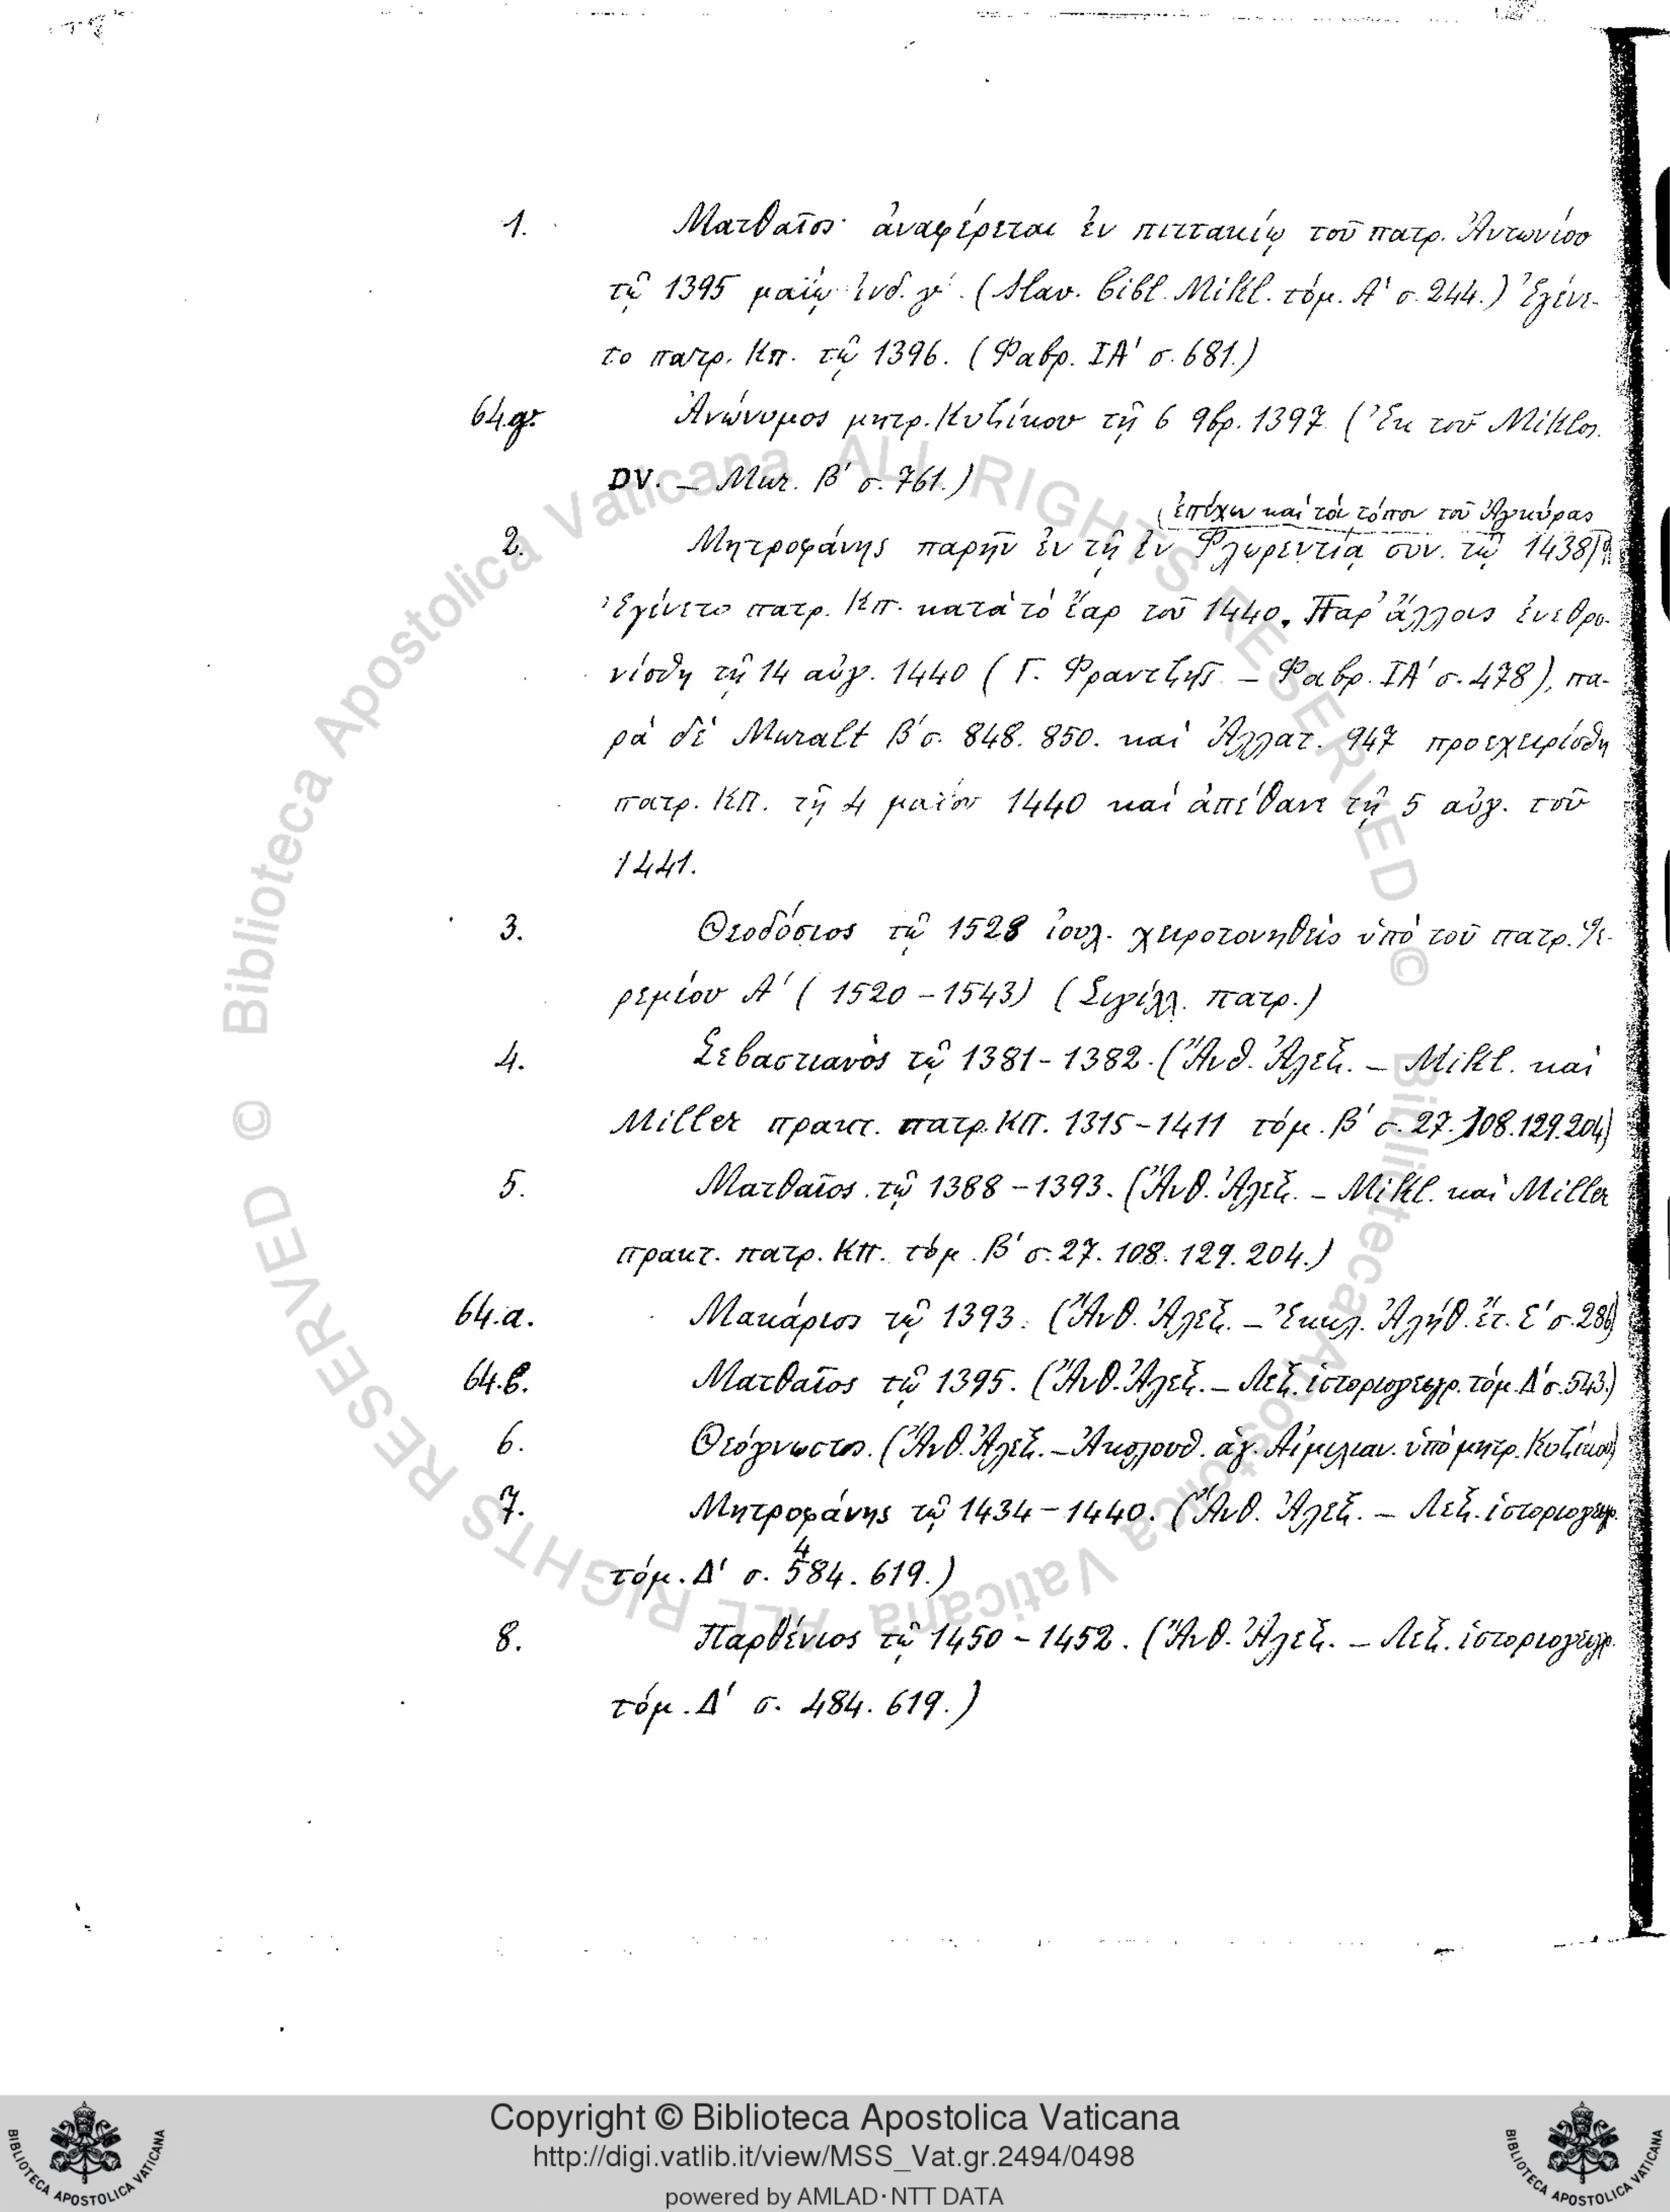 1. Ματθαῖος ἀναφέρεται ἐν πιττακίῳ τοῦ πατρ. Ἀντωνίου
τῷ 1395 μαΐῳ ἰνδ. γ΄. (Slav. bibl. Mikl. τόμ. Α' σ. 244.) Ἐγένε-
το πατρ. Κπ. τῷ 1396. (Φαβρ. ΙΑ' σ. 681.)
64.g. Ἀνώνυμος μητρ. Κυζίκου τῇ 6 9βρ. 1397. (Ἐκ τοῦ Miklos.
DV. – Mur. β' σ. 761.)
(ἐπέχων καὶ τὸν τόπον τοῦ Ἀγκύρας
2. Μητροφάνης παρῆν ἐν τῇ ἐν Φλωρεντίᾳ συν. τῷ 1438)
Ἐγένετο πατρ. Κπ. κατὰ τὸ ἔαρ τοῦ 1440. Παρ' ἄλλοις ἐνεθρο-
νίσθη τῇ 14 αὐγ. 1440 (Γ. Φραντζῆς – Φαβρ. ΙΑ' σ. 478), πα-
ρὰ δὲ Muralt β' σ. 848. 850. καὶ Ἀλλατ. 947 προεχειρίσθη
πατρ. ΚΠ. τῇ 4 μαΐου 1440 καὶ ἀπέθανε τῇ 5 αὐγ. τοῦ
1441.
3. Θεοδόσιος τῷ 1528 ἰουλ. χειροτονηθεὶς ὑπὸ τοῦ πατρ. Ἱε-
ρεμίου Α' (1520 – 1543) (Σιγίλλ. πατρ.)
4. Σεβαστιανὸς τῷ 1381 - 1382. (Ἄνθ. Ἀλεξ. – Mikl. καὶ
Miller πρακτ. πατρ. ΚΠ. 1315 – 1411 τόμ. β' σ. 27. 108. 129. 204)
5. Ματθαῖος τῷ 1388 – 1393. (Ἄνθ. Ἀλεξ. – Mikl. καὶ Miller
πρακτ. πατρ. Κπ. τόμ. β' σ. 27. 108. 129. 204.)
64.a. Μακάριος τῷ 1393. (Ἄνθ. Ἀλεξ. – Ἐκκλ. Ἀλήθ. ἔτ. Ε' σ. 286)
64.b. Ματθαῖος τῷ 1395. (Ἄνθ. Ἀλεξ. – Λεξ. ἱστοριογεωγρ. τόμ. Δ' σ. 543.)
6. Θεόγνωστος. (Ἄνθ. Ἀλεξ. – Ἀκολουθ. ἁγ. Αἰμιλιαν. ὑπὸ μητρ. Κυζίκου)
7. Μητροφάνης τῷ 1434 – 1440. (Ἄνθ. Ἀλεξ. – Λεξ. ἱστοριογεωγρ.
4
τόμ. Δ' σ. 584. 619.)
8. Παρθένιος τῷ 1450 – 1452. (Ἄνθ. Ἀλεξ. – Λεξ. ἱστοριογεωγρ.
τόμ. Δ' σ. 484. 619.)
© Biblioteca Apostolica Vaticana ALL RIGHTS RESERVED © Biblioteca Apostolica Vaticana ALL RIGHTS RESERVED
BIBLIOTECA APOSTOLICA VATICANA
Copyright © Biblioteca Apostolica Vaticana
http://digi.vatlib.it/view/MSS_Vat.gr.2494/0498
powered by AMLAD·NTT DATA
BIBLIOTECA APOSTOLICA VATICANA